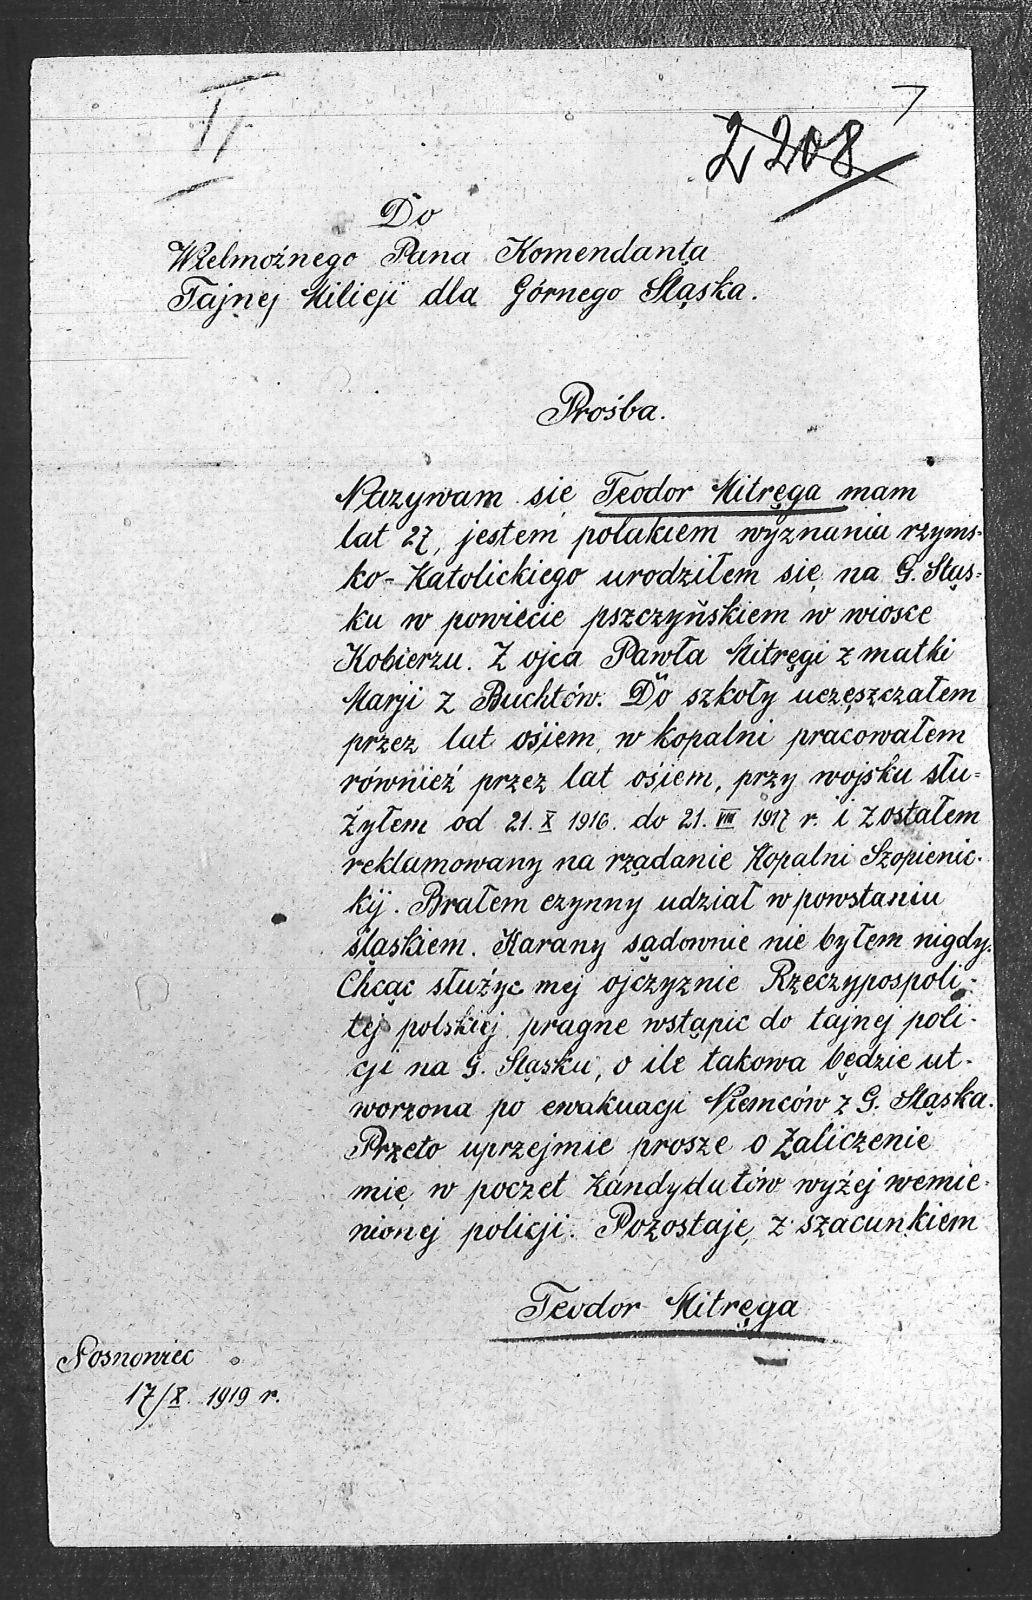 7
2208
Do
Wielmożnego Pana Komendanta
Tajnej Milicji dla Górnego Śląska.
Prośba.
Nazywam się Teodor Mitręga mam
lat 27, jestem polakiem wyznania rzyms-
ko-Katolickiego urodziłem się na G. Śląs=
ku w powiecie pszczyńskiem w wiosce
Kobierzu. Z ojca Pawła Mitręgi z matki
Marji z Buchtów. Do szkoły uczęszczałem
przez lat ośiem, w kopalni pracowałem
równieź przez lat ośiem, przy wojsku słu=
żyłem od 21. X 1916. do 21. VIII 1917 r. i zostałem
reklamowany na rządanie Kopalni Szopienic-
kij. Brałem czynny udział w powstaniu
śląskiem. Karany sądownie nie byłem nigdy.
Chcąc służyc mej ojczyznie Rzeczypospoli-
tej polskiej pragne wstąpic do tajnej poli-
cji na G. Śląsku, o ile takowa będzie ut-
worzona po ewakuacji Niemców z G. Śląska.
Przeto uprzejmie prosze o zaliczenie
mię w poczet kandydatów wyźej wemie-
nionej policji. Pozostaję z szacunkiem
Teodor Mitręga
Sosnowiec
17/X. 1919 r.